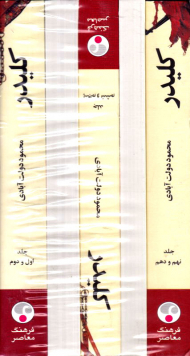 کلیدر
محمود دولت آبادی
جلد
اول و دوم
فرهنگ
معاصر
فرهنگ
معاصر
جلد
محمود دولت آبادی
کلیدر
کلیدر
محمود دولت آبادی
جلد
نهم و دهم
فرهنگ
معاصر